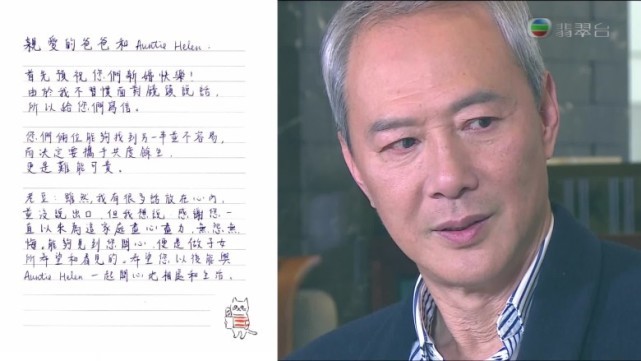 親愛的爸爸和 Auntie Helen.
首先預祝您們新婚快樂!
由於我不習慣面對鏡頭說話,
所以給您們寫信。
您們倆位能夠找到另一半並不容易,
而決定要攜手共度餘生,
更是難能可貴。
老豆:雖然,我有很多話放在心內,
並沒說出口,但我想說,感謝您一
直以來為這家庭盡心盡力,無怨無
悔。能夠見到您開心,便是做子女
所希望和看見的。希望您以後能與
Auntie Helen 一起開心地相處和生活。
翡翠台